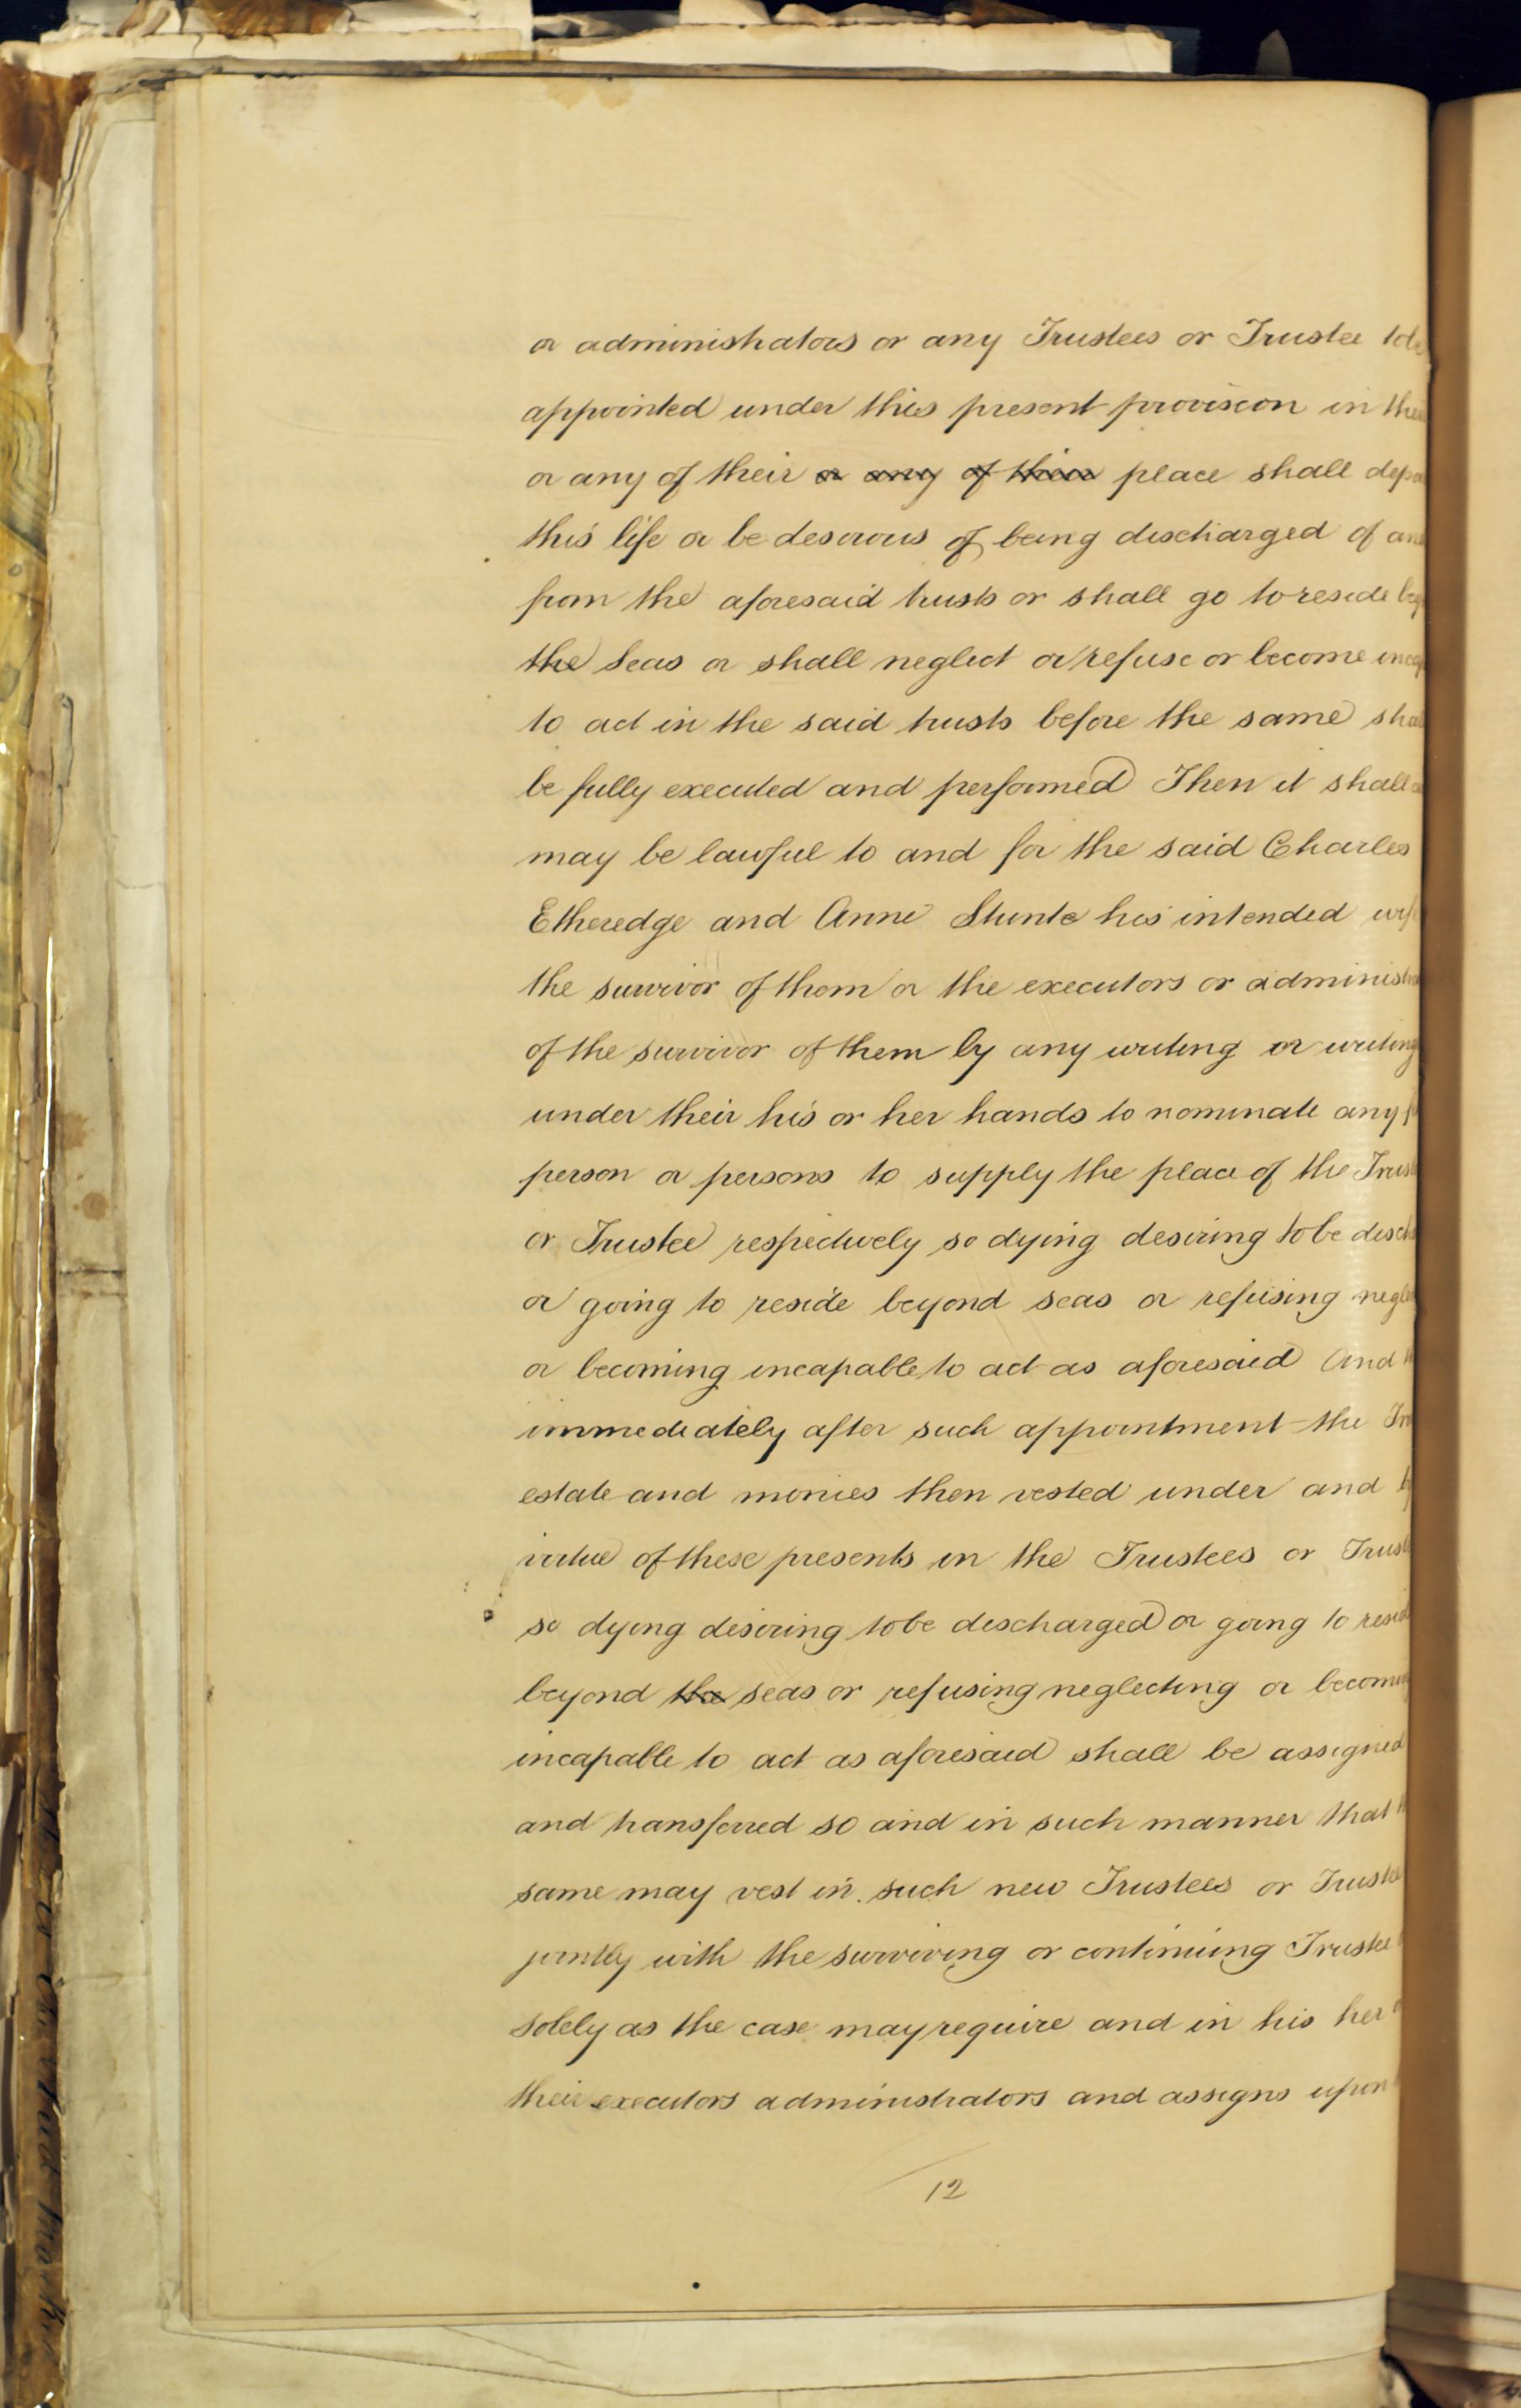 or administrators or any Trustees or Trustee to be
appointed under this present provision in the
or any of their or any of their place shall depa
this life or be desirous of being discharged of an
from the aforesaid trusts or shall go to reside bey
the seas or shall neglect or refuse or become incap
to act in the said trusts before the same sha
be fully executed and performed Then it shall
may be lawful to and for the said Charles
Etheredge and Anne Stunte his intended wife
the survivor of them or the executors or administra
of the survivor of them by any writing or writing
under their his or her hands to nominate any
person or persons to supply the place of the Trust
or Trustee respectively so dying desiring to be disch
or going to reside beyond seas or refusing negle
or becoming incapable to act as aforesaid And
immediately after such appointment the Tru
estate and monies then vested under and b
virtue of these presents in the Trustees or Trust
so dying desiring to be discharged or going to resid
beyond the seas or refusing neglecting or becomin
incapable to act as aforesaid shall be assigned
and transferred so and in such manner that
same may vest in such new Trustees or Trustee
jointly with the surviving or continuing Trustee
solely as the case may require and in his her
their executors administrators and assigns upon
12